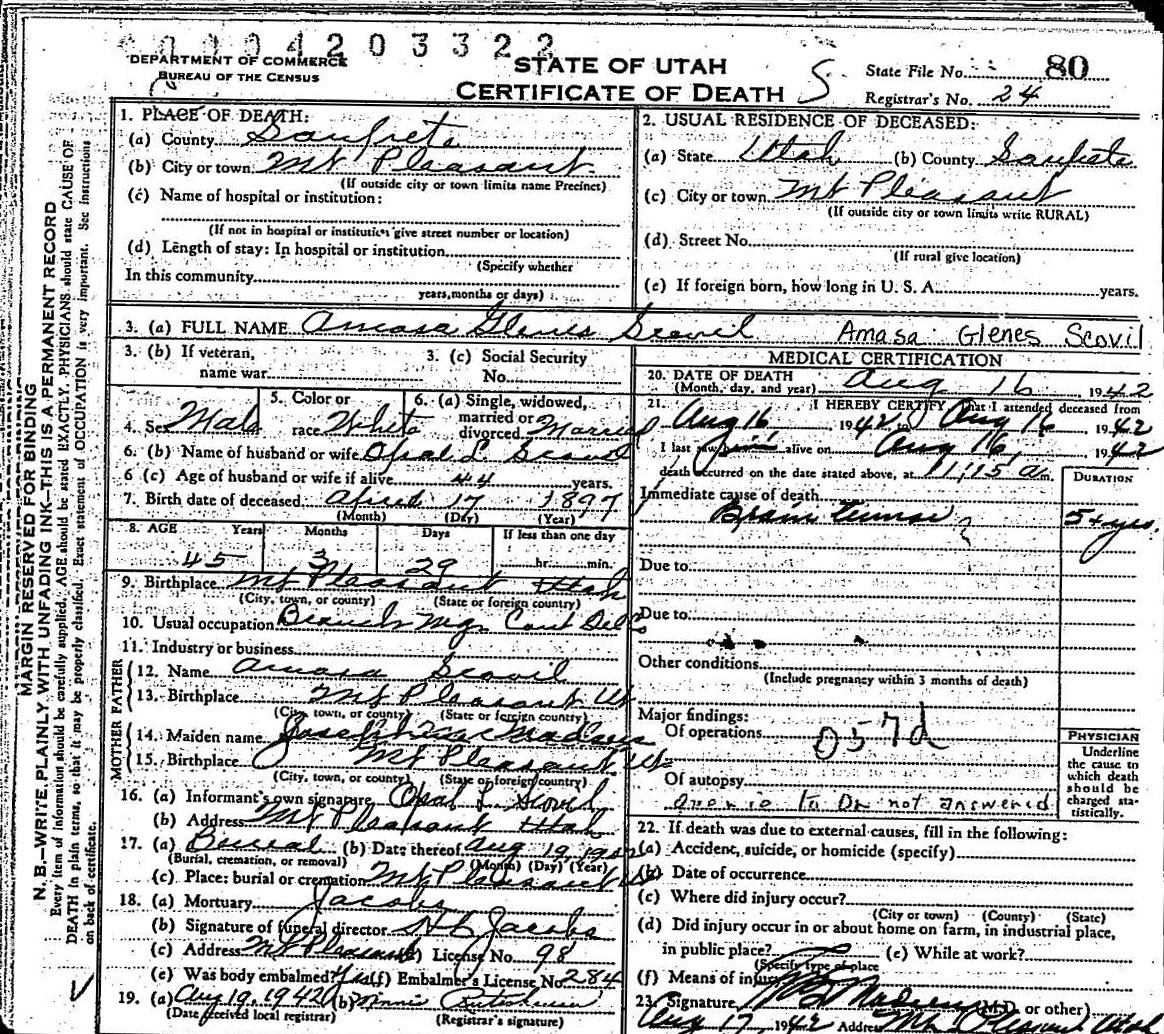 0004203322
DEPARTMENT OF COMMERCE
BUREAU OF THE CENSUS
STATE OF UTAH
CERTIFICATE OF DEATH
S
State File No. 80
Registrar's No. 24
MARGIN RESERVED FOR BINDING
N. B.—WRITE PLAINLY WITH UNFADING INK—THIS IS A PERMANENT RECORD
Every item of information should be carefully supplied. AGE should be stated EXACTLY. PHYSICIANS should state CAUSE OF
DEATH in plain terms, so that it may be properly classified. Exact statement of OCCUPATION is very important. See instructions
on back of certificate.
1. PLACE OF DEATH:
(a) County Sanpete
(b) City or town Mt Pleasant
(If outside city or town limits name Precinct)
(c) Name of hospital or institution:
(If not in hospital or institution give street number or location)
(d) Length of stay: In hospital or institution
(Specify whether
In this community
years, months or days)
2. USUAL RESIDENCE OF DECEASED:
(a) State Utah (b) County Sanpete
(c) City or town Mt Pleasant
(If outside city or town limits write RURAL)
(d) Street No.
(If rural give location)
(e) If foreign born, how long in U. S. A. years.
3. (a) FULL NAME Amasa Glenes Scovil Amasa Glenes Scovil
3. (b) If veteran,
name war
3. (c) Social Security
No.
4. Sex Male
5. Color or
race White
6. (a) Single, widowed,
married or
divorced Married
6. (b) Name of husband or wife Opal L Scovil
6 (c) Age of husband or wife if alive 44 years.
7. Birth date of deceased April 17 1897
(Month) (Day) (Year)
8. AGE Years Months Days If less than one day
45 3 29 hr. min.
9. Birthplace Mt Pleasant Utah
(City, town, or county) (State or foreign country)
10. Usual occupation Branch Mgr
11. Industry or business
FATHER
12. Name Amasa Scovil
13. Birthplace Mt Pleasant Ut
(City, town, or county) (State or foreign country)
MOTHER
14. Maiden name Josephine Madsen
15. Birthplace Mt Pleasant Ut
(City, town, or county) (State or foreign country)
16. (a) Informant's own signature Opal L Scovil
(b) Address Mt Pleasant Utah
17. (a) Burial (b) Date thereof Aug 19, 1942
(Burial, cremation, or removal) (Month) (Day) (Year)
(c) Place: burial or cremation Mt Pleasant Ut
18. (a) Mortuary Jacobs
(b) Signature of funeral director Jacobs
(c) Address Mt Pleasant License No. 98
(e) Was body embalmed? Yes (f) Embalmer's License No. 284
19. (a) Aug 19, 1942 (b)
(Date received local registrar) (Registrar's signature)
MEDICAL CERTIFICATION
20. DATE OF DEATH
(Month, day, and year) Aug 16 1942
21. I HEREBY CERTIFY, that I attended deceased from
Aug 16, 1942, to Aug 16, 1942
I last saw him alive on Aug 16, 1942
death occurred on the date stated above, at 11:15 a m.
DURATION
Immediate cause of death
Brain Tumor ? 5+ yrs.
Due to
Due to
Other conditions
(Include pregnancy within 3 months of death)
Major findings:
Of operations 057d
Of autopsy
to Dr not answered
PHYSICIAN
Underline
the cause to
which death
should be
charged sta-
tistically.
22. If death was due to external causes, fill in the following:
(a) Accident, suicide, or homicide (specify)
(b) Date of occurrence
(c) Where did injury occur?
(City or town) (County) (State)
(d) Did injury occur in or about home on farm, in industrial place,
in public place? (e) While at work?
(Specify type of place
(f) Means of injury
23. Signature Madsen (M.D. or other)
Aug 17, 1942 Address Mt Pleasant Utah